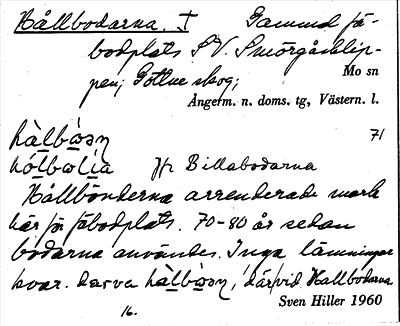 Hållbodarna. I Gammal fä-
bodplats S.V. Smörgåsklip-
pen, Gottne skog;
Mo sn
Ångerm. n. doms. tg, Västern. l.
hàlbòɷɲ 71
hólbɷlía Jfr Billabodarna
Hållbönderna arrenderade mark
här för fäbodplats. 70-80 år sedan
bodarna användes. Inga lämningar
kvar. darva hàlbòɷɲ, därvid Hållbodarna
Sven Hiller 1960
16.